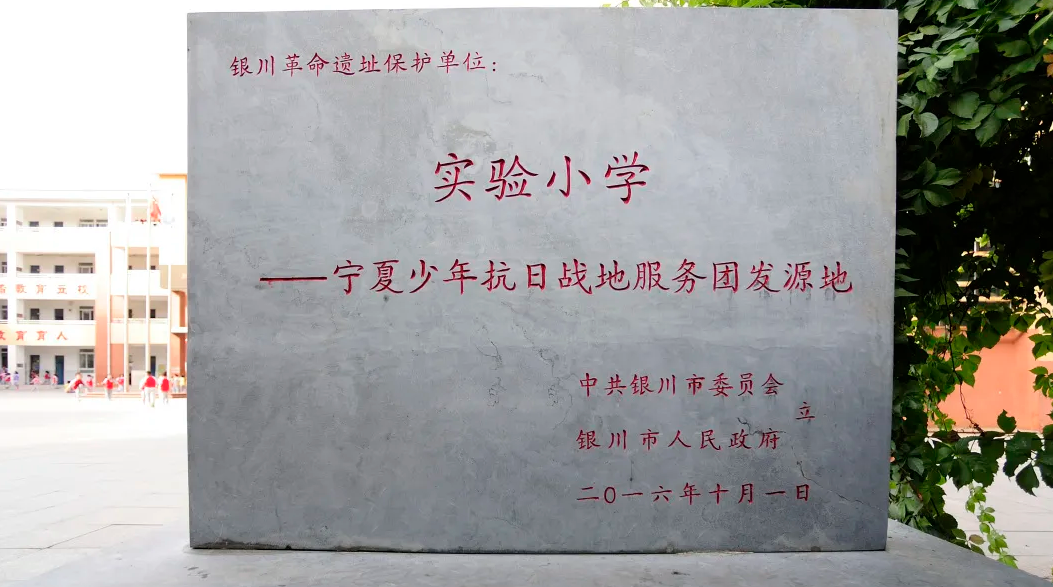 银川革命遗址保护单位：
实验小学
——宁夏少年抗日战地服务团发源地
中共银川市委员会
立
银川市人民政府
二〇一六年十月一日
教育立校
教育育人